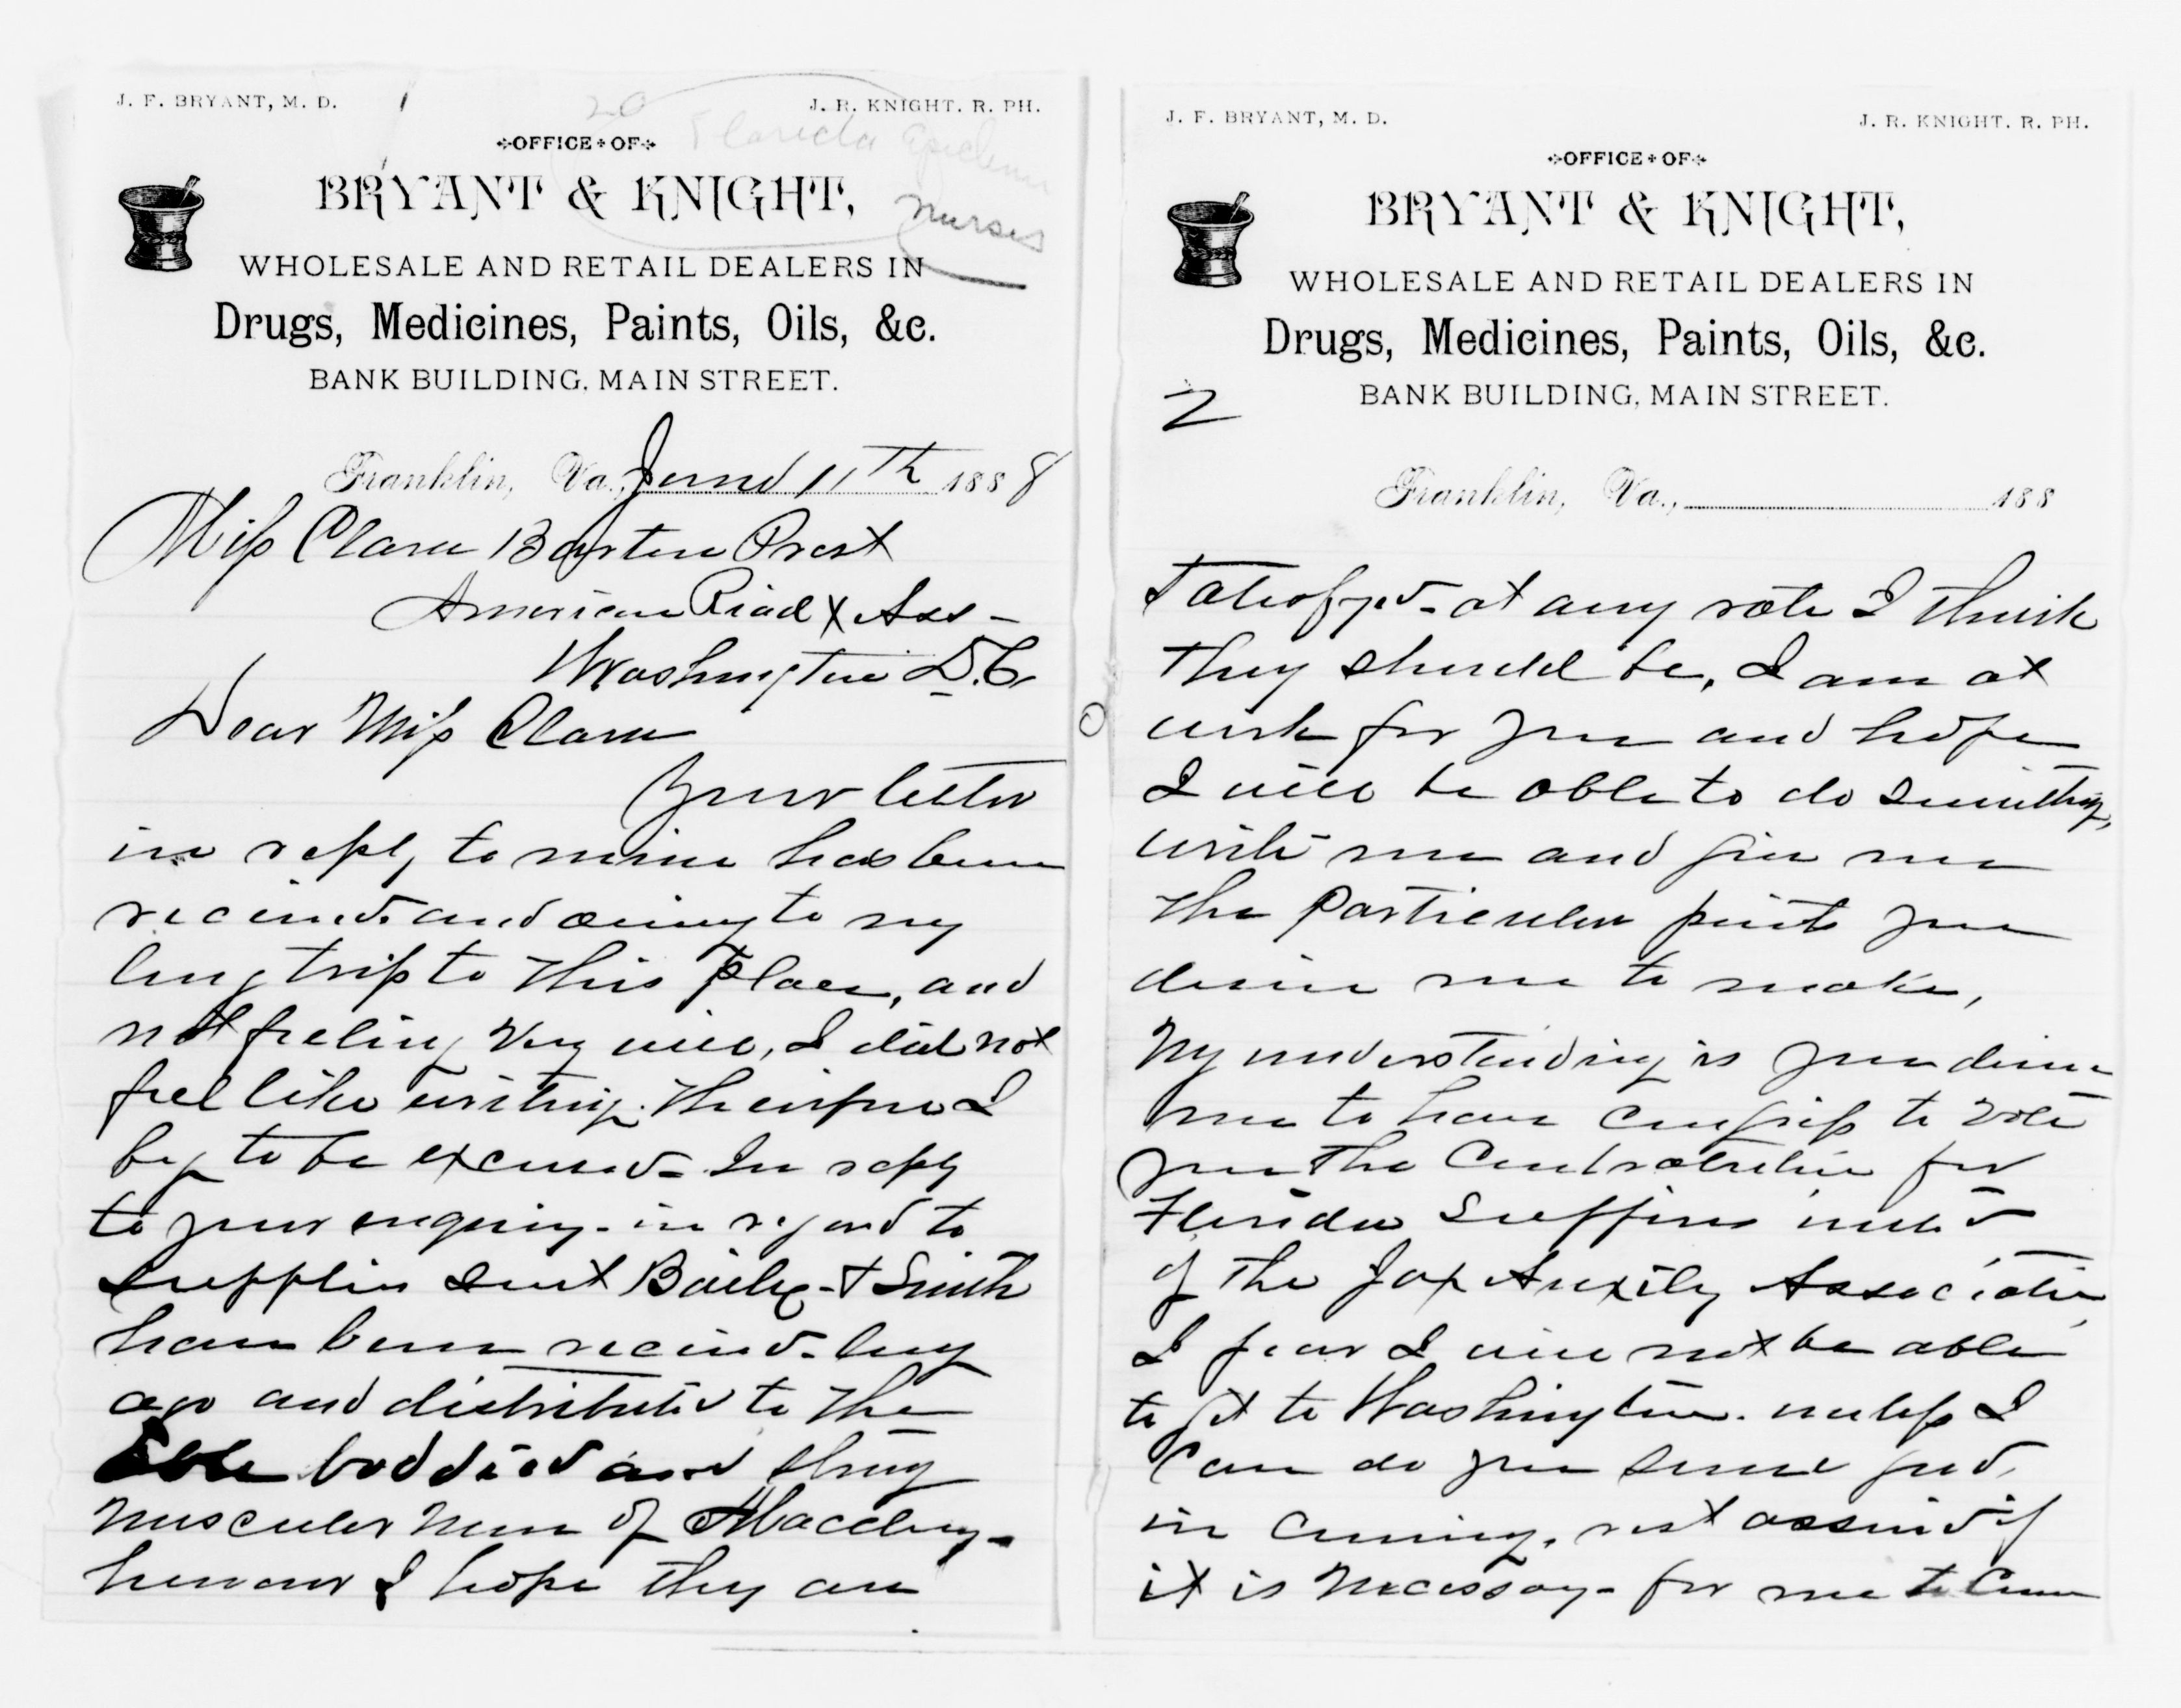 J. F. BRYANT, M. D.
1
20
J. R. KNIGHT. R. PH.
Florida Epidemic
Nurses
OFFICE OF
BRYANT & KNIGHT,
WHOLESALE AND RETAIL DEALERS IN
Drugs, Medicines, Paints, Oils, &c.
BANK BUILDING, MAIN STREET.
Franklin, Va., June 11th 1888
Miss Clara Barton Prest
American Read X Ass -
Washington D.C.
Dear Miss Clara
Your letter
in reply to mine has been
received. and owing to my
long trip to this place, and
not feeling very well, I did not
feel like writing. Therefore I
beg to be excused - In reply
to your enquiry - in regard to
supplies sent Bailey - & Smith
have been received - long
ago and distributed to the
able boddied and strong
muscular men of Maccleny -
however I hope they are
J. F. BRYANT, M. D.
J. R. KNIGHT. R. PH.
OFFICE OF
BRYANT & KNIGHT,
WHOLESALE AND RETAIL DEALERS IN
Drugs, Medicines, Paints, Oils, &c.
BANK BUILDING, MAIN STREET.
2
Franklin, Va., 188
Satisfyed - at any rate I think
they should be, I am at
work for you and hope
I will be able to do something,
write me and give me
the particular points you
desire me to make,
My understanding is you desire
me to have Congress to vote
you the
Florida Suffers instead
of the Jax Auxily Association
I fear I will not be able
to get to Washington. unless I
can do you some good,
in coming, rest assured if
it is necessay - for me to come